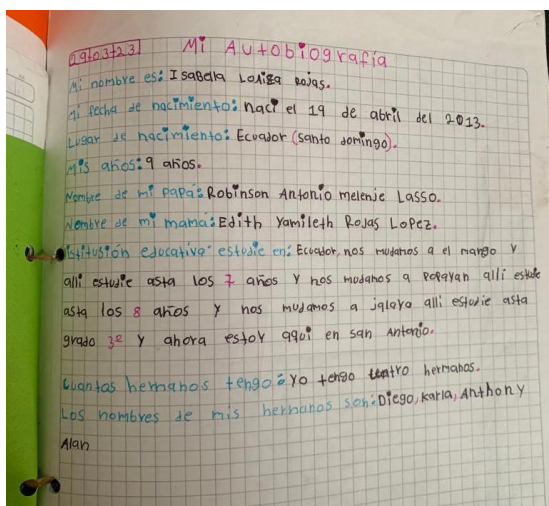 29-03-23 Mi Autobiografía
Mi nombre es: Isabella Rojas.
Mi fecha de nacimiento: naci el 19 de abril del 2013.
Lugar de nacimiento: Ecuador (santo domingo).
Mis años: 9 años.
Nombre de mi papá: Robinson Antonio melenje Lasso.
Nombre de mi mamá: Edith Yamileth Rojas Lopez.
educativa estudie en: Ecuador, nos mudamos a el mango y
alli estudie asta los 7 años y nos mudamos a Popayan alli estudie
asta los 8 años y nos mudamos a jalaya alli estudie asta
grado 3º y ahora estoy aqui en san Antonio.
Cuantos hemanos tengo: yo tengo hermanos.
Los nombres de mis hermanos son: Diego, Karla, Anthony
Alan